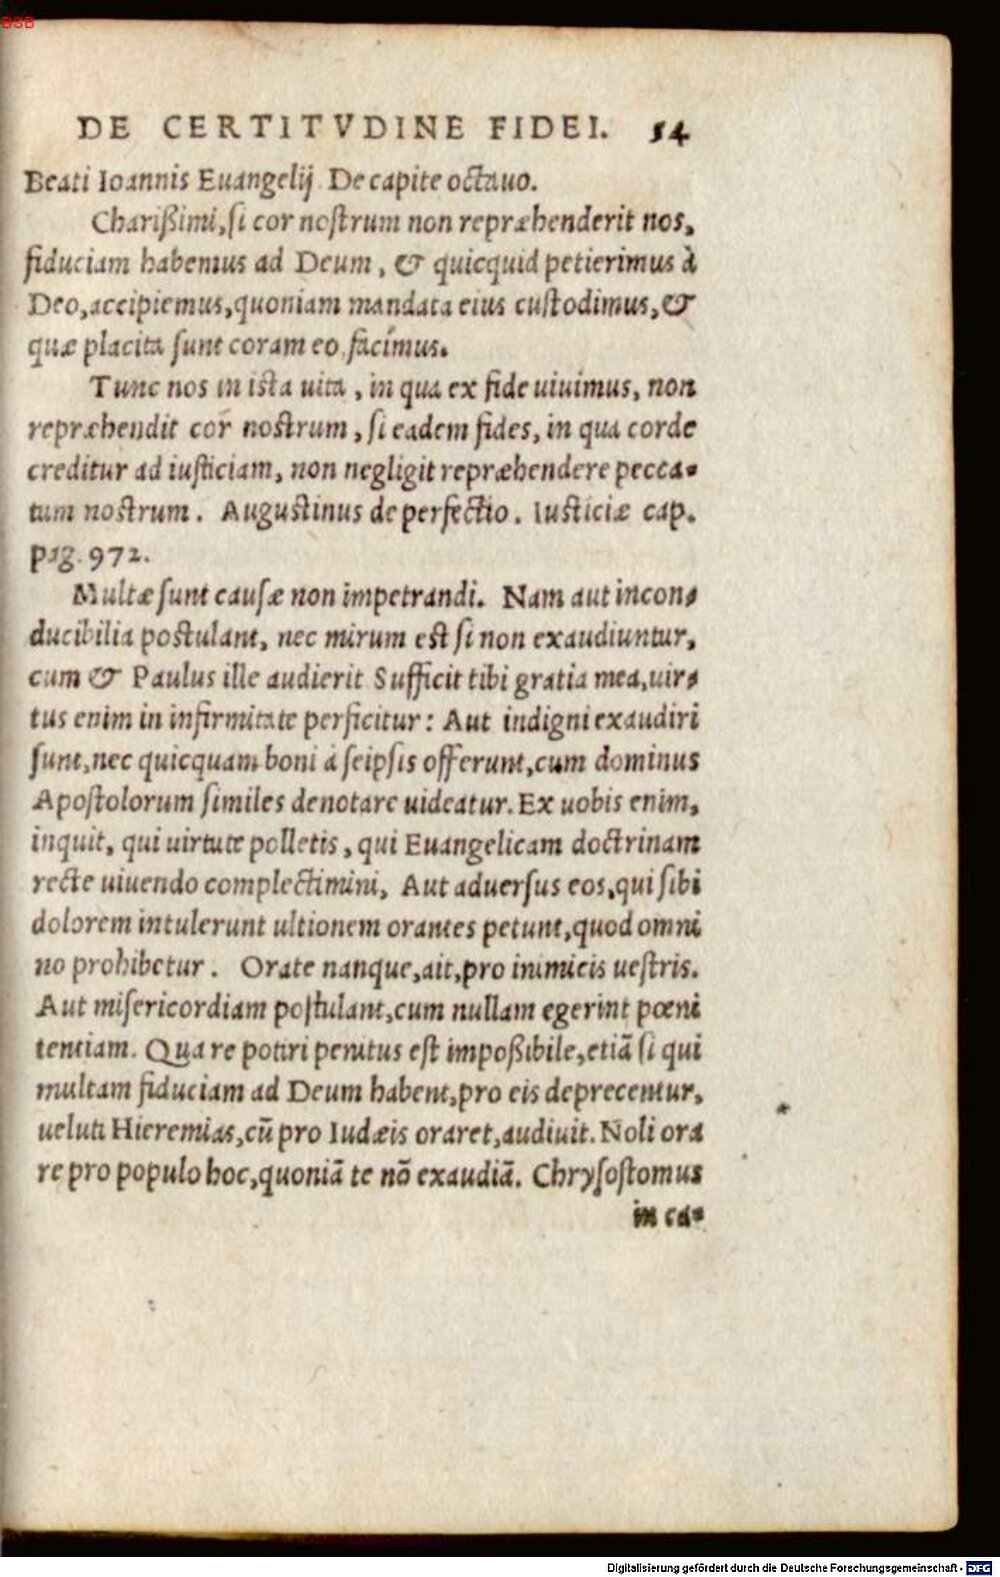 BSB
DE CERTITVDINE FIDEI. 54
Beati Ioannis Euangelij De capite octauo.
Charißimi, si cor nostrum non repræhenderit nos,
fiduciam habemus ad Deum, & quicquid petierimus à
Deo, accipiemus, quoniam mandata eius custodimus, &
quæ placita sunt coram eo facimus.
Tunc nos in ista uita, in qua ex fide uiuimus, non
repræhendit cor nostrum, si eadem fides, in qua corde
creditur ad iusticiam, non negligit repræhendere pecca-
tum nostrum. Augustinus de perfectio. Iusticiæ cap.
pag. 972.
Multæ sunt causæ non impetrandi. Nam aut incon-
ducibilia postulant, nec mirum est si non exaudiuntur,
cum & Paulus ille audierit Sufficit tibi gratia mea, uir-
tus enim in infirmitate perficitur: Aut indigni exaudiri
sunt, nec quicquam boni à seipsis offerunt, cum dominus
Apostolorum similes denotare uideatur. Ex uobis enim,
inquit, qui uirtute polletis, qui Euangelicam doctrinam
recte uiuendo complectimini, Aut aduersus eos, qui sibi
dolorem intulerunt ultionem orantes petunt, quod omni
no prohibetur. Orate nanque, ait, pro inimicis uestris.
Aut misericordiam postulant, cum nullam egerint pœni
tentiam. Qua re potiri penitus est impoßibile, etiā si qui
multam fiduciam ad Deum habent, pro eis deprecentur,
ueluti Hieremias, cū pro Iudæis oraret, audiuit. Noli ora
re pro populo hoc, quoniā te nō exaudiā. Chrysostomus
in ca-
Digitalisierung gefördert durch die Deutsche Forschungsgemeinschaft - DFG